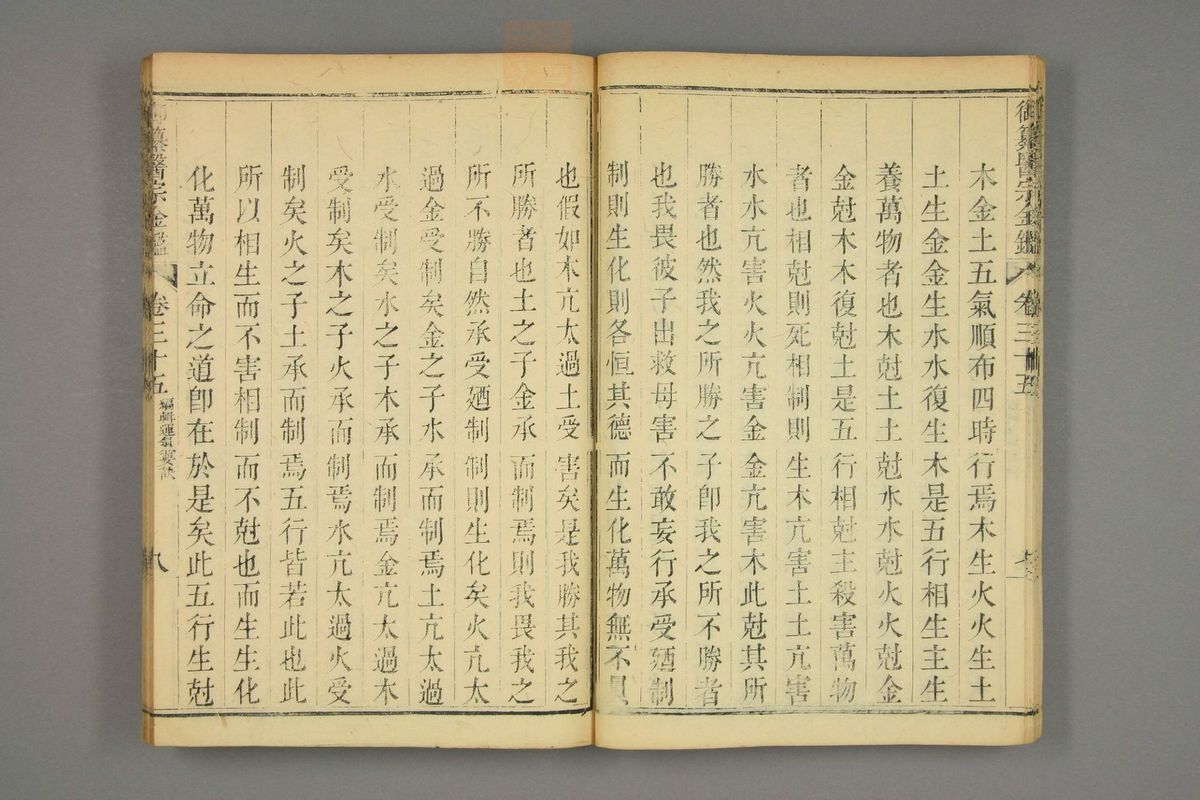 御纂醫宗金鑑 卷三十五 七
木金土五氣順布四時行焉木生火火生土
土生金金生水水復生木是五行相生主生
養萬物者也木尅土土尅水水尅火火尅金
金尅木木復尅土是五行相尅主殺害萬物
者也相尅則死相制則生木亢害土土亢害
水水亢害火火亢害金金亢害木此尅其所
勝者也然我之所勝之子卽我之所不勝者
也我畏彼子出救母害不敢妄行承受廼制
制則生化則各恒其德而生化萬物無不具
也假如木亢太過土受害矣是我勝其我之
所勝者也土之子金承而制焉則我畏我之
所不勝自然承受廼制制則生化矣火亢太
過金受制矣金之子水承而制焉土亢太過
水受制矣水之子木承而制焉金亢太過木
受制矣木之子火承而制焉水亢太過火受
制矣火之子土承而制焉五行皆若此也此
所以相生而不害相制而不尅也而生生化
化萬物立命之道卽在於是矣此五行生尅
纂醫宗金鑑 卷三十五 編輯運氣要訣 八